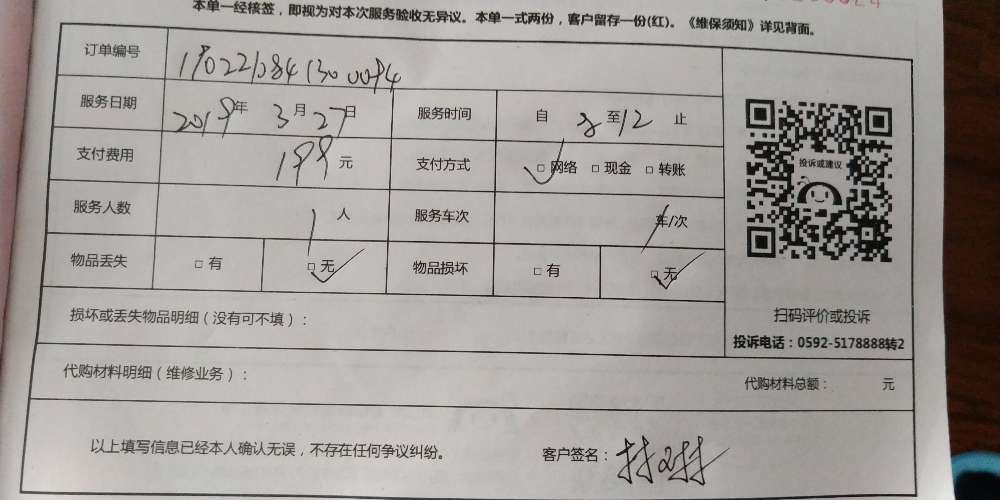 本单一经核签，即视为对本次服务验收无异议。本单一式两份，客户留存一份(红)。《维保须知》详见背面。
订单编号
服务日期 2019年 3月27日 服务时间 自 8 至12 止
支付费用 199元 支付方式 □网络 □现金 □转账
投诉或建议
服务人数 1人 服务车次 车/次
物品丢失 □有 □无 物品损坏 □有 □无
损坏或丢失物品明细（没有可不填）：
扫码评价或投诉
投诉电话：0592-5178888转2
代购材料明细（维修业务）： 代购材料总额： 元
以上填写信息已经本人确认无误，不存在任何争议纠纷。 客户签名：